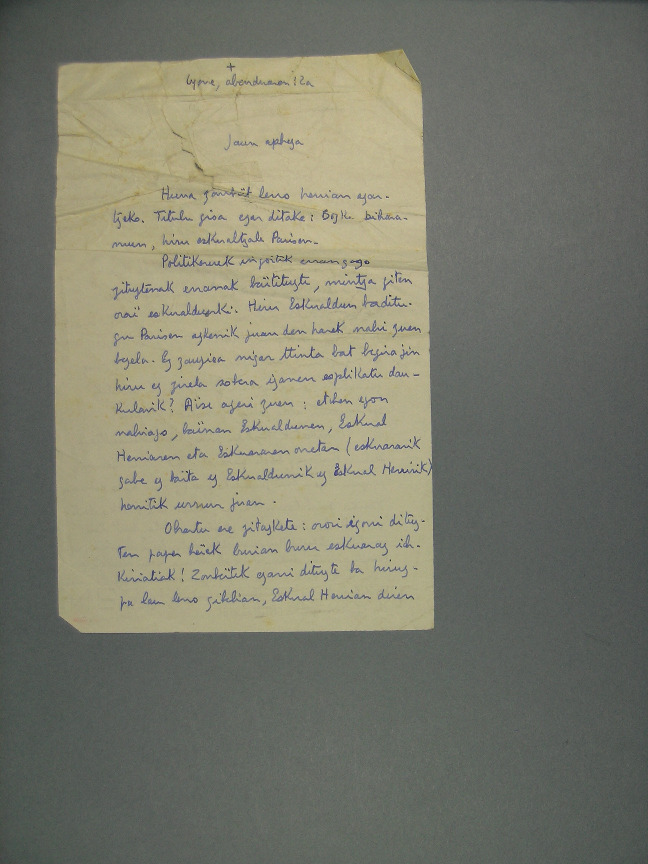 +
abenduaren 12a
Jaun apheza
Huna zonbüt lerro herrian ezar-
tzeko. Titulu gisa ezar ditake: Bozka bihara-
mun, hiru eskualtzale Parisen.
Politikerek ingoitik erran gogo
zituztenak erranak baitituzte, mintza giten
orai eskualduerki. Hiru Eskualdun baditu-
gu Parisen azkenik juan den harek nahi zuen
bezela. Ez zauzia nigar ttinta bat begira jin
hiru ez zirela sobera izanen esplikatu dau-
kularik? Aise ageri zuen: etxen egon
nahiago, bainan Eskualdunen, Eskual
Herriaren eta Eskuararen onetan (eskuararik
gabe ez baita ez Eskualdunik ez Eskual Herririk)
herritik urrun juan.
Ohartu ere zitazkete: orori igorri dituz-
ten paper heiek burian buru eskuaraz izk-
iriatiak! Zonbütek egarri dituzte ba hiruz-
pa lau lerro gibelian, Eskual Herrian diren